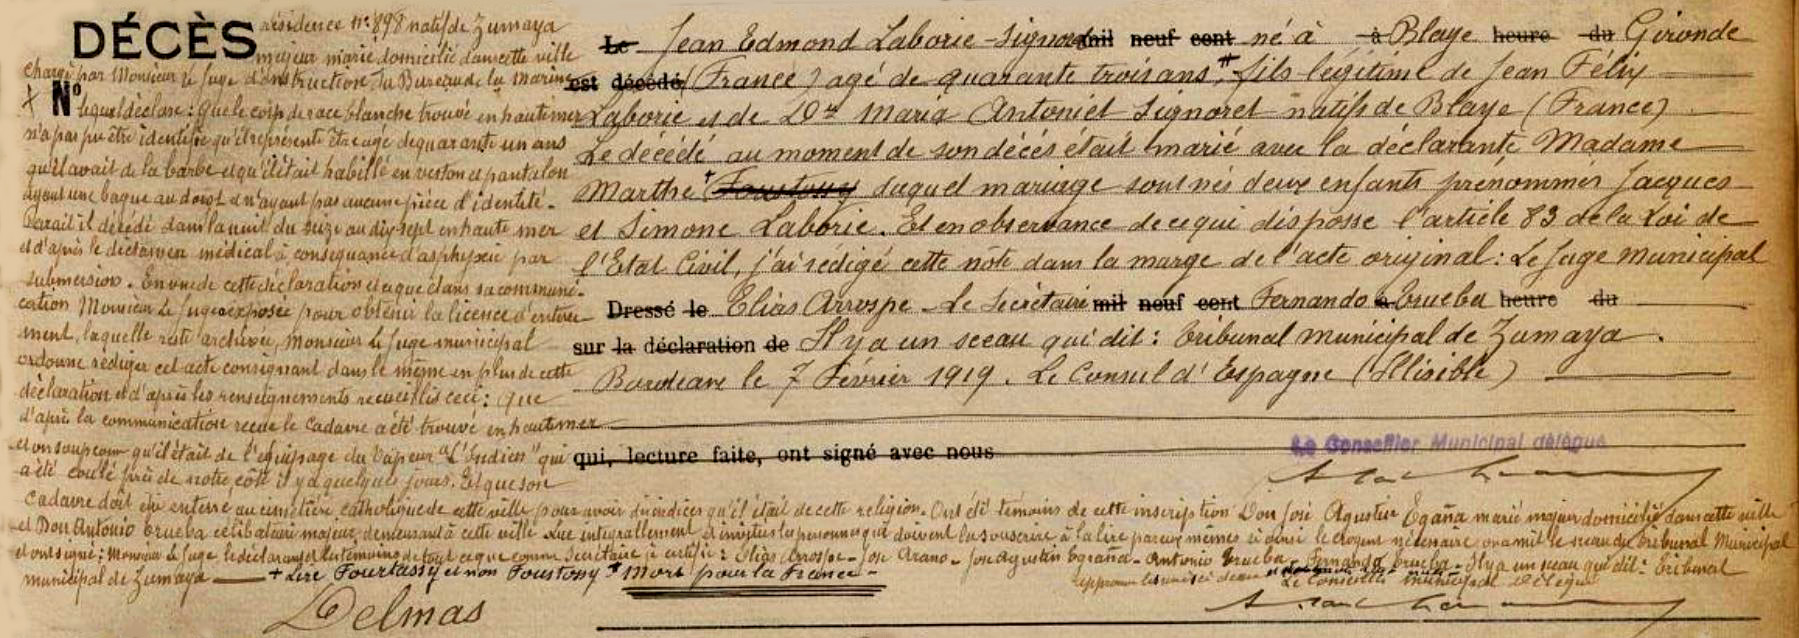 DÉCÈS
résidence n: 898 natif de Zumaya
majeur marié domicilié dans cette ville
chargé par Monsieur le Juge d'instruction du Bureau de la marine
+ N° lequel déclare: que le corps de race blanche trouvé en haute mer
n'a pas pu être identifié qu'il représente être agé de quarante un ans
qu'il avait de la barbe et qu'il était habillé en veston et pantalon
ayant une bague au doigt et n'ayant pas aucune pièce d'identité.-
Parait il décédé dans la nuit du seize au dix-sept en haute mer
et d'après le dictamen médical à conséquance d'asphyxie par
submersion. En vue de cette déclaration et ce que dans sa communi-
cation Monsieur le Juge a exposée pour obtenir la licence d'enterre-
ment, laquelle reste archivée, monsieur le Juge municipal
ordonne rédiger cet acte consignant dans le même en plus de cette
déclaration et d'après les renseignements recueillis ceci: que
d'après la communication recue le cadavre a été trouvé en haute mer
et on soupconne qu'il était de l'équipage du Vapeur "L'Indien" qui
a été coulé près de notre côte il y a quelques jours. Et que son
Le Jean Edmond Laborie - Signoret mil neuf cent né à à Blaye heure du Gironde
est décédé (France) agé de quarante trois ans, # fils légitime de Jean Félix
Laborie et de Dne Maria Antoniet Signoret natifs de Blaye (France)
Le décédé au moment de son décés était marié avec la déclarante Madame
Marthe + Foustossy duquel mariage sont nés deux enfants prénommés Jacques
et Simone Laborie. Et en observance de ce qui disposse l'article 83 de la Loi de
l'Etat Civil, j'ai rédigé cette note dans la marge de l'acte original: Le Juge municipal
Dressé le Elias Arrospe - Le Secrétaire mil neuf cent Fernando à Trueba heure du
sur la déclaration de Il y a un sceau qui dit: Tribunal municipal de Zumaya.
Bordeaux le 7 Février 1919. Le Consul d'Espagne (Illisible)
qui, lecture faite, ont signé avec nous
Le Conseiller Municipal délégué
cadavre doit être enterré au cimetière catholique de cette ville pour avoir d'indices qu'il était de cette religion. Ont été témoins de cette inscription Don José Agustin Egaña marié majeur domicilié dans cette ville
et Don Antonio Trueba célibataire majeur demeurant à cette ville. Lue intégrallement et invités les personnes qui doivent la souscrire à la lire par eux mêmes si ainsi le croyent nécessaire on a mit le sceau du Tribunal Municipal
et ont signé: Monsieur le Juge le déclarant et les témoins de tout ce que comme Secrétaire je certifie: Elias Arrospe - José Arano - José Agustin Egraña - Antonio Trueba - Fernando Trueba - Il y a un seau qui dit: Tribunal
municipal de Zumaya + Lire Fourtassy et non Foustossy # Mort pour la France -
Le Conseiller municipal délégué
Delmas